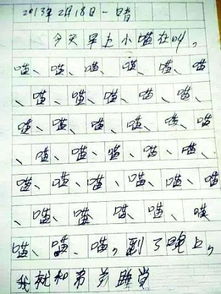 2013年2月18日一晴
今天早上小喵在叫，
喵、喵、喵、喵、喵、喵
、喵、喵、喵、喵、喵
喵、喵、喵、喵、喵、喵
、喵、喵、喵、喵、喵
、喵、喵、喵、喵、喵
喵、喵、喵、喵、喵、喵
、喵、喵、喵、喵、喵
喵、喵、喵，到了晚上，
我就和弟弟睡觉